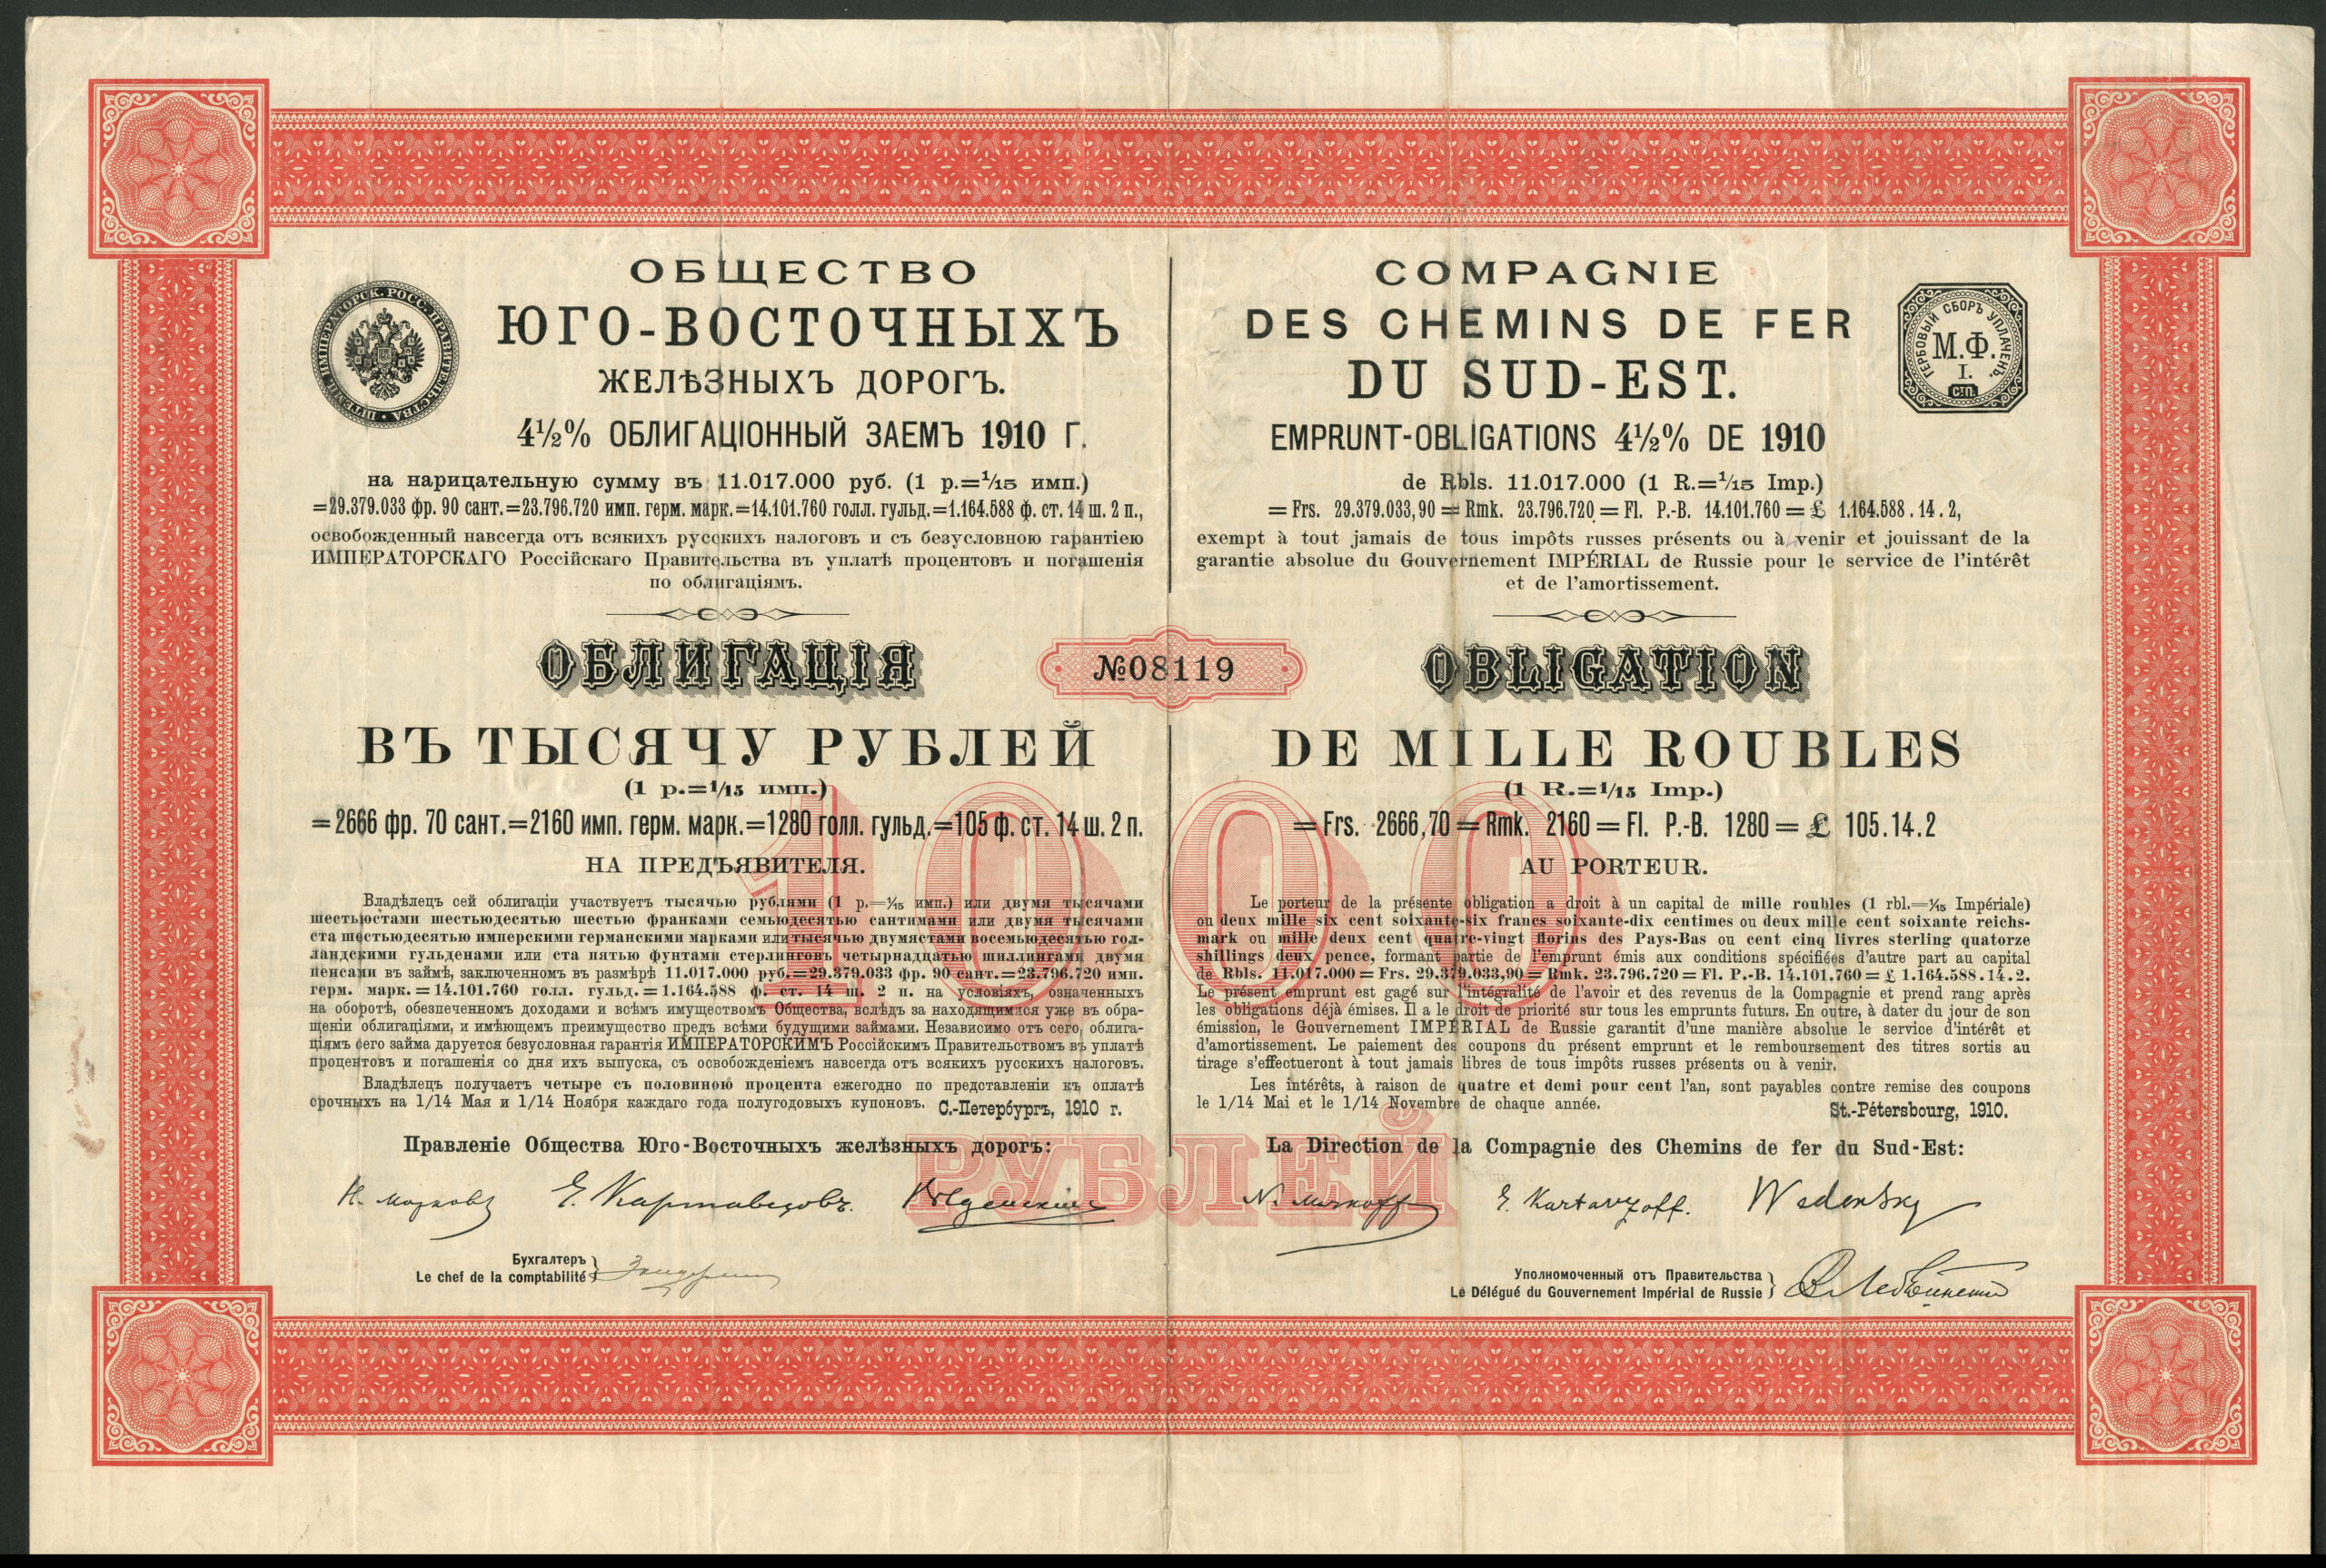 ОБЩЕСТВО
ЮГО-ВОСТОЧНЫХЪ
ЖЕЛѢЗНЫХЪ ДОРОГЪ.
4½% ОБЛИГАЦІОННЫЙ ЗАЕМЪ 1910 Г.
на нарицательную сумму въ 11.017.000 руб. (1 р.=1/15 имп.)
=29.379.033 фр. 90 сант.=23.796.720 имп. герм. марк.=14.101.760 голл. гульд.=1.164.588 ф. ст. 14 ш. 2 п.,
освобожденный навсегда отъ всякихъ русскихъ налоговъ и съ безусловною гарантіею
ИМПЕРАТОРСКАГО Россійскаго Правительства въ уплатѣ процентовъ и погашенія
по облигаціямъ.
ОБЛИГАЦІЯ
ВЪ ТЫСЯЧУ РУБЛЕЙ
(1 р.=1/15 имп.)
=2666 фр. 70 сант.=2160 имп. герм. марк.=1280 голл. гульд.=105 ф. ст. 14 ш. 2 п.
НА ПРЕДЪЯВИТЕЛЯ.
Владѣлецъ сей облигаціи участвуетъ тысячью рублями (1 р.=1/15 имп.) или двумя тысячами
шестьюстами шестьюдесятью шестью франками семьюдесятью сантимами или двумя тысячами
ста шестьюдесятью имперскими германскими марками или тысячью двумястами восемьюдесятью гол-
ландскими гульденами или ста пятью фунтами стерлинговъ четырнадцатью шиллингами двумя
пенсами въ займѣ, заключенномъ въ размѣрѣ 11.017.000 руб.=29.379.033 фр. 90 сант.=23.796.720 имп.
герм. марк.=14.101.760 голл. гульд.=1.164.588 ф. ст. 14 ш. 2 п. на условіяхъ, означенныхъ
на оборотѣ, обезпеченномъ доходами и всѣмъ имуществомъ Общества, вслѣдъ за находящимися уже въ обра-
щеніи облигаціями, и имѣющемъ преимущество предъ всѣми будущими займами. Независимо отъ сего, облига-
ціямъ сего займа даруется безусловная гарантія ИМПЕРАТОРСКИМЪ Россійскимъ Правительствомъ въ уплатѣ
процентовъ и погашенія со дня ихъ выпуска, съ освобожденіемъ навсегда отъ всякихъ русскихъ налоговъ.
Владѣлецъ получаетъ четыре съ половиною процента ежегодно по представленіи къ оплатѣ
срочныхъ на 1/14 Мая и 1/14 Ноября каждаго года полугодовыхъ купоновъ.
С.-Петербургъ, 1910 г.
Правленіе Общества Юго-Восточныхъ желѣзныхъ дорогъ:
Н. Марковъ Е. Картавцовъ. Введенскій
Бухгалтеръ
Le chef de la comptabilité
№08119
1000
РУБЛЕЙ
COMPAGNIE
DES CHEMINS DE FER
DU SUD-EST.
EMPRUNT-OBLIGATIONS 4½% DE 1910
de Rbls. 11.017.000 (1 R.=1/15 Imp.)
=Frs. 29.379.033,90=Rmk. 23.796.720=Fl. P.-B. 14.101.760=£ 1.164.588.14.2,
exempt à tout jamais de tous impôts russes présents ou à venir et jouissant de la
garantie absolue du Gouvernement IMPÉRIAL de Russie pour le service de l'intérêt
et de l'amortissement.
OBLIGATION
DE MILLE ROUBLES
(1 R.=1/15 Imp.)
=Frs. 2666,70=Rmk. 2160=Fl. P.-B. 1280=£ 105.14.2
AU PORTEUR.
Le porteur de la présente obligation a droit à un capital de mille roubles (1 rbl.=1/15 Impériale)
ou deux mille six cent soixante-six francs soixante-dix centimes ou deux mille cent soixante reichs-
mark ou mille deux cent quatre-vingt florins des Pays-Bas ou cent cinq livres sterling quatorze
shillings deux pence, formant partie de l'emprunt émis aux conditions spécifiées d'autre part au capital
de Rbls. 11.017.000=Frs. 29.379.033,90=Rmk. 23.796.720=Fl. P.-B. 14.101.760=£ 1.164.588.14.2.
Le présent emprunt est gagé sur l'intégralité de l'avoir et des revenus de la Compagnie et prend rang après
les obligations déjà émises. Il a le droit de priorité sur tous les emprunts futurs. En outre, à dater du jour de son
émission, le Gouvernement IMPÉRIAL de Russie garantit d'une manière absolue le service d'intérêt et
d'amortissement. Le paiement des coupons du présent emprunt et le remboursement des titres sortis au
tirage s'effectueront à tout jamais libres de tous impôts russes présents ou à venir.
Les intérêts, à raison de quatre et demi pour cent l'an, sont payables contre remise des coupons
le 1/14 Mai et le 1/14 Novembre de chaque année.
St.-Pétersbourg, 1910.
La Direction de la Compagnie des Chemins de fer du Sud-Est:
N. Markoff E. Kartavzoff. Wedensky
Уполномоченный отъ Правительства
Le Délégué du Gouvernement Impérial de Russie
ГЕРБОВЫЙ СБОРЪ УПЛАЧЕНЪ.
М.Ф.
I.
СПП.